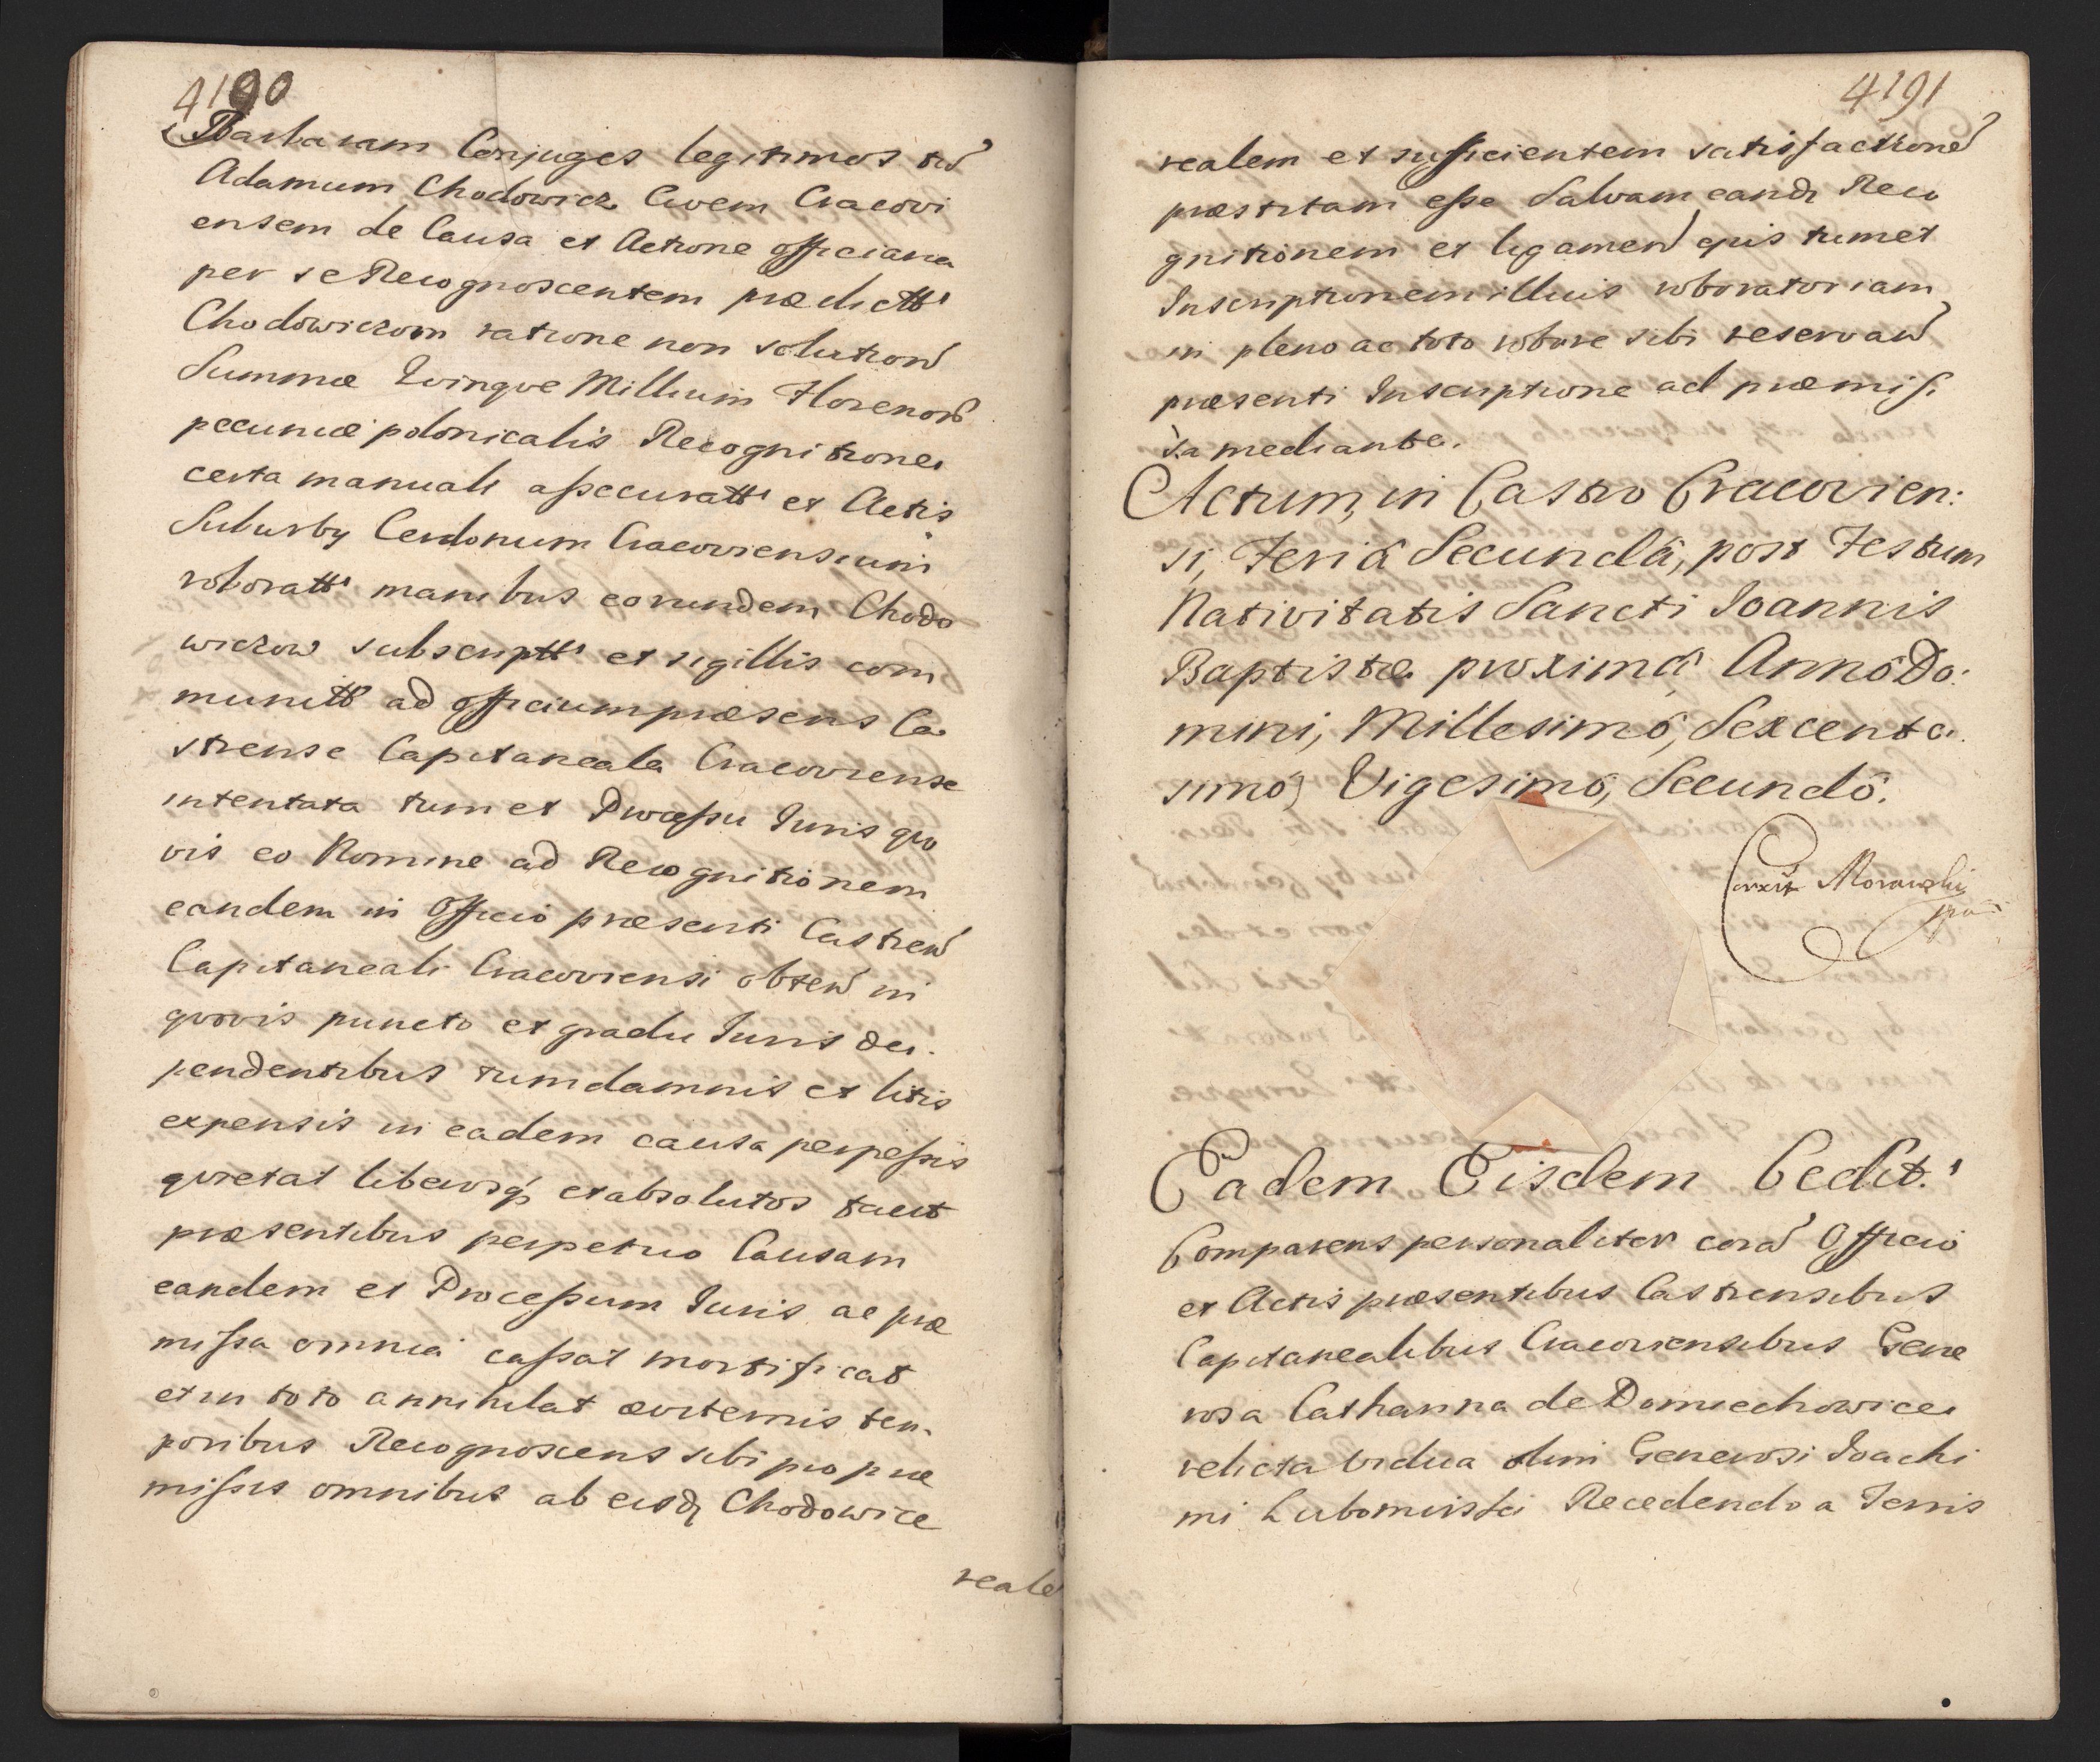 4190
Barbaram Conjuges legitimos tū
Adamum Chodowicz Civem Cracovi
ensem de Causa et Actione officiana
per se Recognoscentem prædictt
Chodowiczom ratione non solution
Summæ Quinque Millium Florenor
pecuniæ polonicalis Recognitione
certa manuali aſsecuratt et Actis
Suburby Cerdonum Cracoviensium
roboratt manibus eorundem Chodo
wiczow subscriptt et sigillis com
munitt ad officium præsens Ca
strense Capitaneale Cracoviense
intentata tum et Proceſsu Juris quo
vis eo Nomine ad Recognitionem
eandem in Officio præsenti Castren
Capitaneali Cracoviensi obten in
quovis puncto et gradu Juris de
pendentibus tum damnis et litis
expensis in eadem causa perpeſsis
quietat liberosq et absolutos facit
præsentibus perpetuo Causam
eandem et Proceſsum Juris ac præ
miſsa omnia caſsat mortificat
et in toto annihilat æviternis tem
poribus Recognoscens sibi pro præ
miſsis omnibus ab eisd Chodowicz
reale
4191
realem et sufficientem satisfactione
præstitam eſse Salvam eand Reco
gnitionem et ligamen ejus tum et
Inscriptionem illius roboratoriam
in pleno ac toto robore sibi reservan
præsenti Inscriptione ad præmiſ
sa mediante.
Actum, in Castro Cracovien:
si, Feriâ Secundâ, post Festum
Nativitatis Sancti Joannis
Baptistæ proximâ Annô Do:
mini, Millesimô, Sexcente
simô, Vigesimô, Secundô.
Correxit Morawski
mp
Eadem Eisdem Cedit.
Comparens personaliter corā Officio
et Actis præsentibus Castrensibus
Capitanealibus Cracoviensibus Gene
rosa Catharina de Domiechowice
relicta vidua olim Generosi Joachi
mi Lubomirski Recedendo a Terris